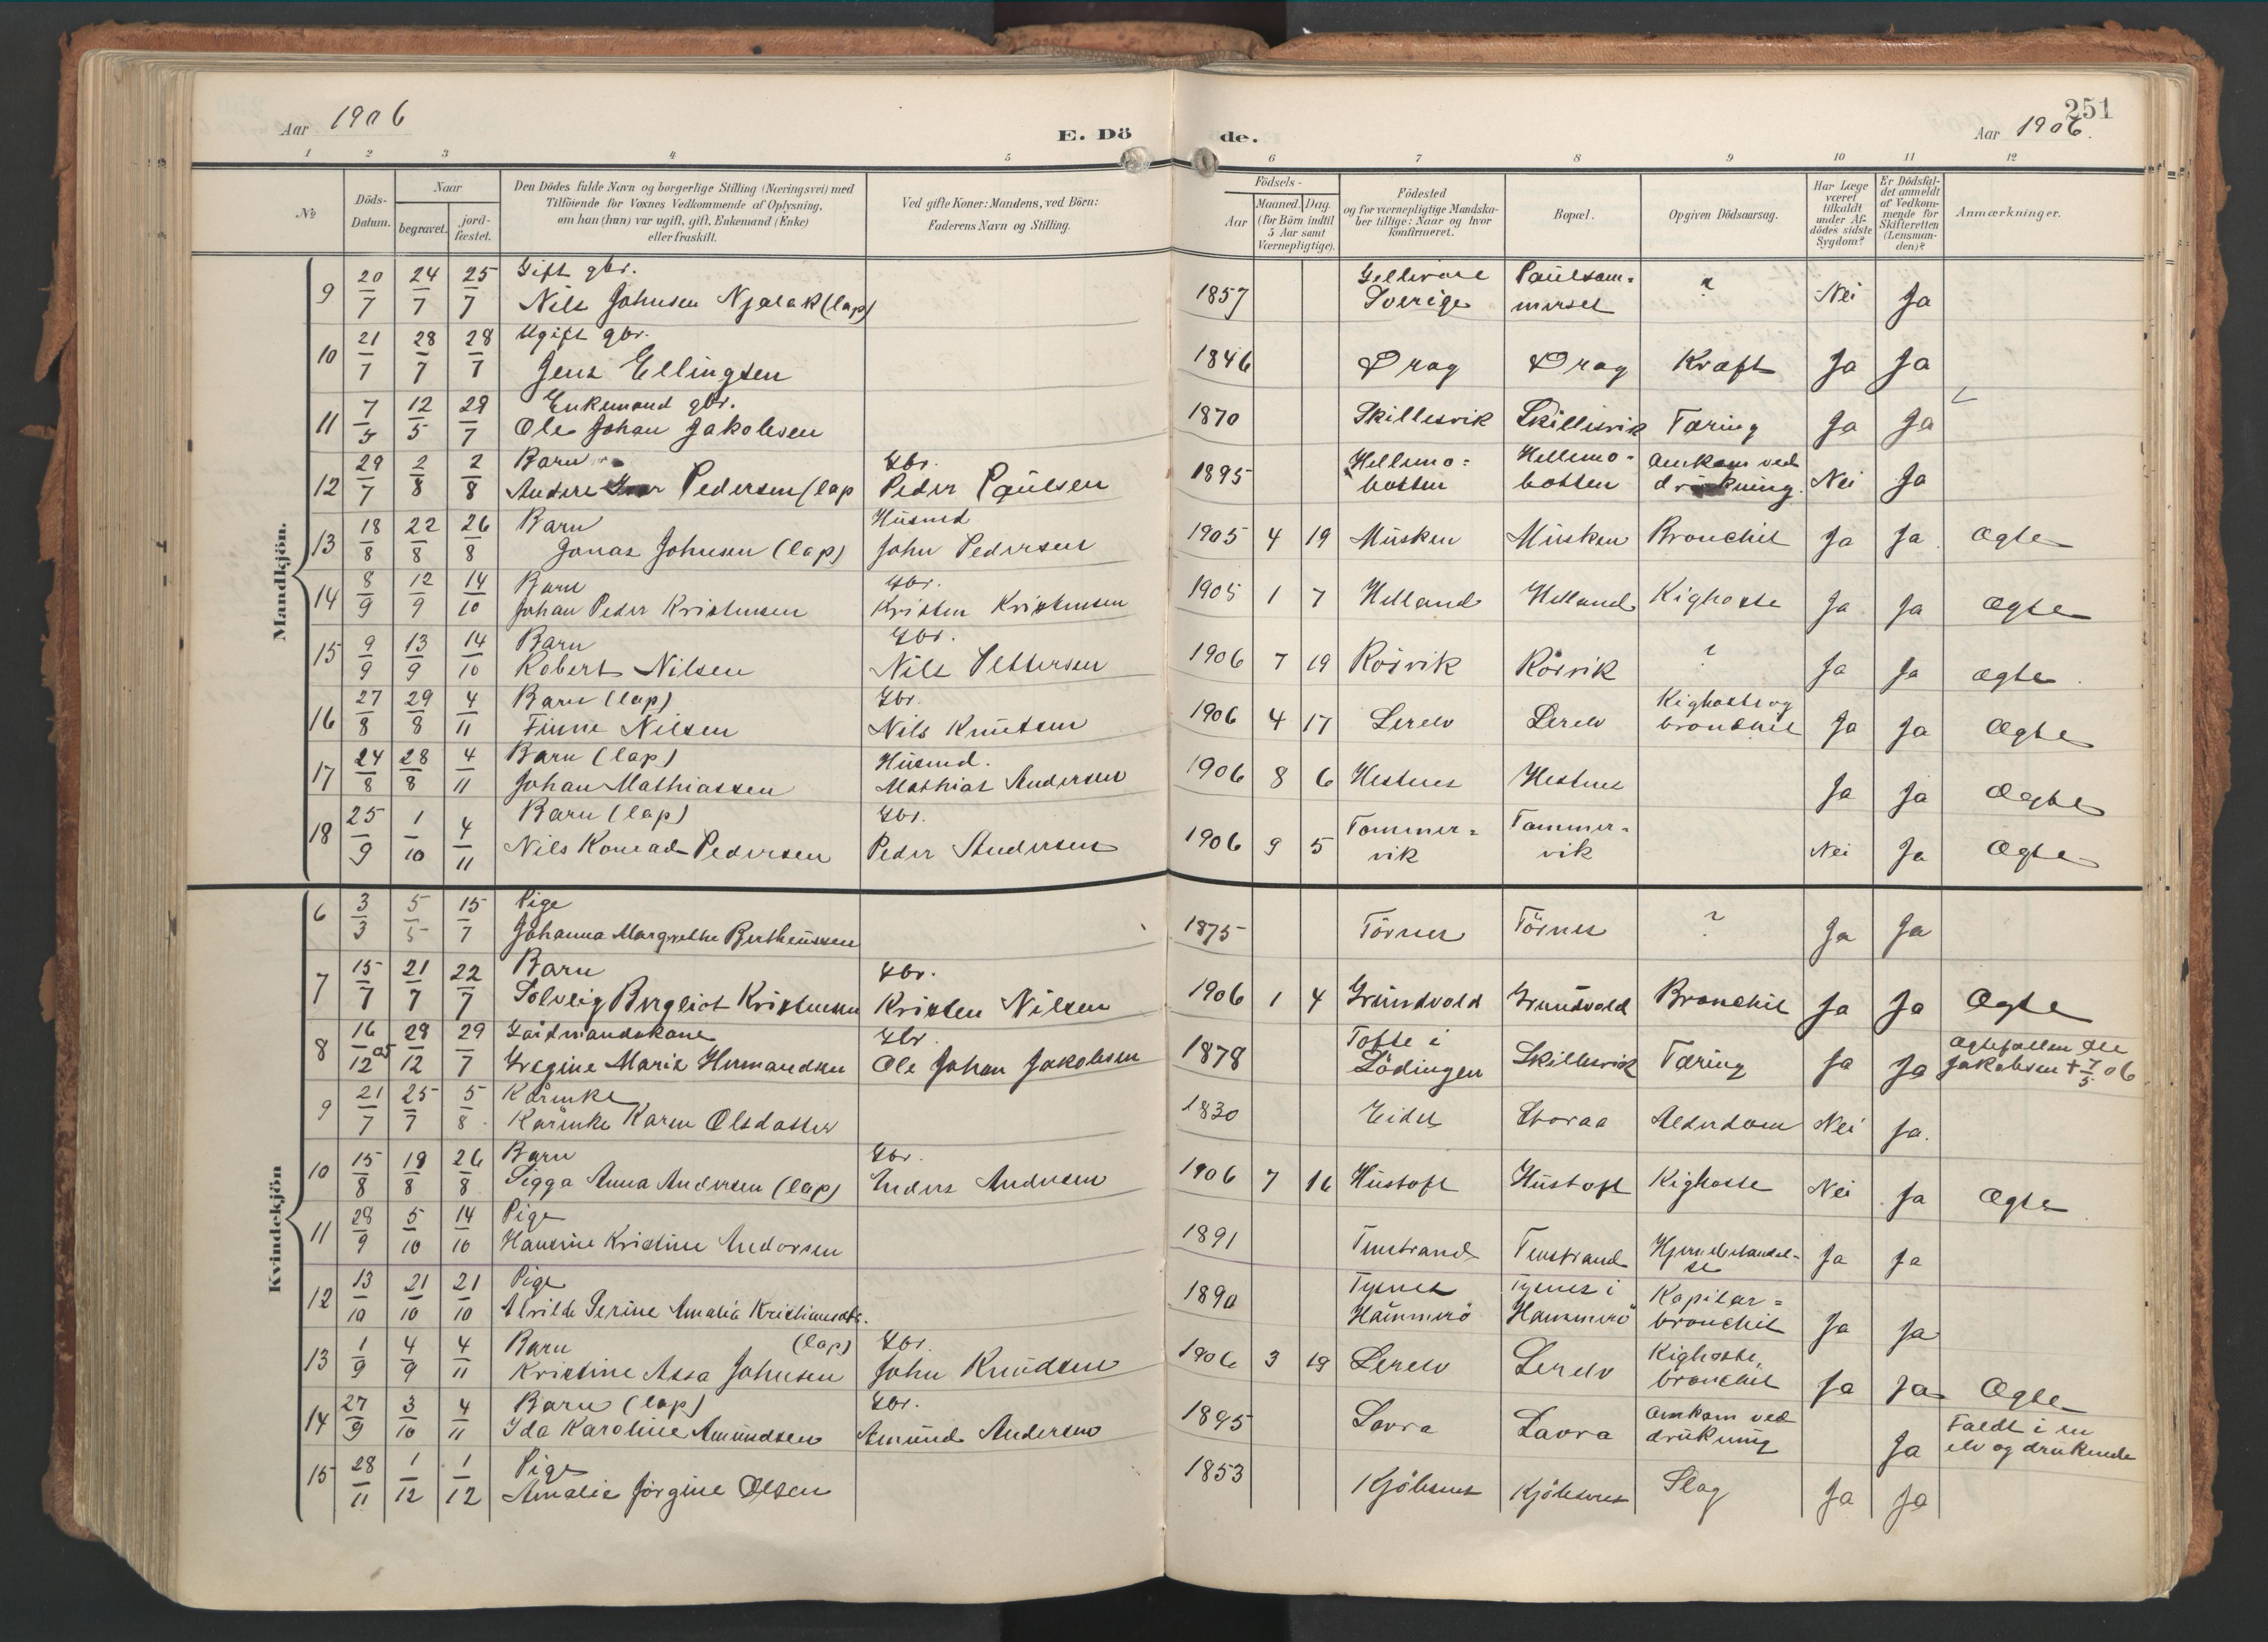 251
Aar 1906
E. Döde.
Aar 1906.
1 2 3 4 5 6 7 8 9 10 11 12
№
Döds-Datum.
Naar
begravet.
jord-fæstet.
Den Dödes fulde Navn og borgerlige Stilling (Næringsvei) med
Tilföiende for Voxnes Vedkommende af Oplysning,
om han (hun) var ugift, gift, Enkemand (Enke)
eller fraskilt.
Ved gifte Koner: Mandens, ved Börn:
Faderens Navn og Stilling.
Födsels-
Aar
Maaned. Dag.
(for Börn indtil
5 Aar samt
Værnepligtige).
Födested
og for værnepligtige Mandska-
ber tillige: Naar og hvor
konfirmeret.
Bopæl.
Opgiven Dödsaarsag.
Har Læge
været
tilkaldt
under Af-
dödes sidste
Sygdom?
Er Dödsfal-
det anmeldt
af Vedkom-
mende for
Skifteretten
(Lensman-
den)?
Anmærkninger.
Mandkjön.
9 20/7 24/7 25/7 Gift gbr. Nils Johnsen Njalak (lap) 1857 Gellivare Sverige Paulsommerset ? Nei Ja
10 21/7 28/7 28/7 Ugift gbr. Jens Ellingsen 1846 Drag Drag Kræft Ja Ja
11 7/5 12/5 29/7 Enkemand gbr. Ole Johan Jakobsen 1870 Skillesvik Skillesvik Tæring Ja Ja
12 29/7 2/8 2/8 Barn Andere Pedersen (lap Gbr. Peder Paulsen 1895 Hellemo=botten Hellemo=botten Omkom ved drukning. Nei Ja
13 18/8 22/8 26/8 Barn Jonas Johnsen (lap) Husmd John Pedersen 1905 4 19 Musken Musken Bronchit Ja Ja Ægte
14 8/9 12/9 14/10 Barn Johan Peder Kristensen Gbr. Kristen Kristensen 1905 1 7 Helland Helland Kighoste Ja Ja Ægte
15 9/9 13/9 14/10 Barn Robert Nilsen Gbr. Nils Pettersen 1906 7 19 Rörvik Rörvik ? Ja Ja Ægte
16 27/8 29/8 4/11 Barn (lap) Finne Nilsen Gbr. Nils Knutsen 1906 4 17 Lerelv Lerelv Kighoste og bronchit Ja Ja Ægte
17 24/8 28/8 4/11 Barn (lap) Johan Mathiassen Husmd. Mathias Andersen 1906 8 6 Hestnes Hestnes Ja Ja Ægte
18 25/9 1/10 4/11 Barn (lap) Nils Konrad Pedersen Gbr. Peder Andersen 1906 9 5 Tommer=vik Tommer=vik Nei Ja Ægte
Kvindekjön
6 3/3 5/5 15/7 Pige Johanna Margrethe Bertheussen 1875 Törnes Törnes ? Ja Ja
7 15/7 21/7 22/7 Barn Solveig Bergliot Kristensen Gbr. Kristen Nilsen 1906 1 4 Grundvold Grundvold Bronchit Ja Ja Ægte
8 16/12 05 29/12 29/7 Gaardmandskone Gregine Marie Hermandsen Gbr. Ole Johan Jakobsen 1878 Tofte i Lödingen Skillesvik Tæring Ja Ja Ægtefællen Ole Jakobsen + 7/5 06
9 21/7 25/7 5/8 Kårinke Kårinke Karen Olsdatter 1830 Eidet Storaa Alderdom Nei Ja.
10 15/8 19/8 26/8 Barn Sigga Anna Andersen (lap) Gbr. Enders Andersen 1906 7 16 Hustoft Hustoft Kighoste Nei Ja Ægte
11 28/9 5/10 14/10 Pige Hansine Kristine Andorsen 1891 Finstrand Finstrand Hjernebetændel-se Ja Ja
12 13/10 21/10 21/10 Pige Alvilde Perine Amalia Kristiansdtr. 1890 Tysnes Hammerö Tysnes i Hammerö Kapilar=bronchit Ja Ja
13 1/9 4/9 4/11 Barn (lap) Kristine Assa Johnsen Gbr. John Knudsen 1906 3 19 Lerelv Lerelv Kighoste, bronchit Ja Ja Ægte
14 27/9 3/10 4/11 Barn (lap) Ida Karoline Amundsen Gbr. Amund Andersen 1895 Lavra Lavra Omkom ved drukning Ja Faldt i en elv og druknede
15 28/11 1/12 1/12 Pige Amalie Jörgine Olsen 1853 Kjöbsnes Kjöbsnes Slag Ja Ja